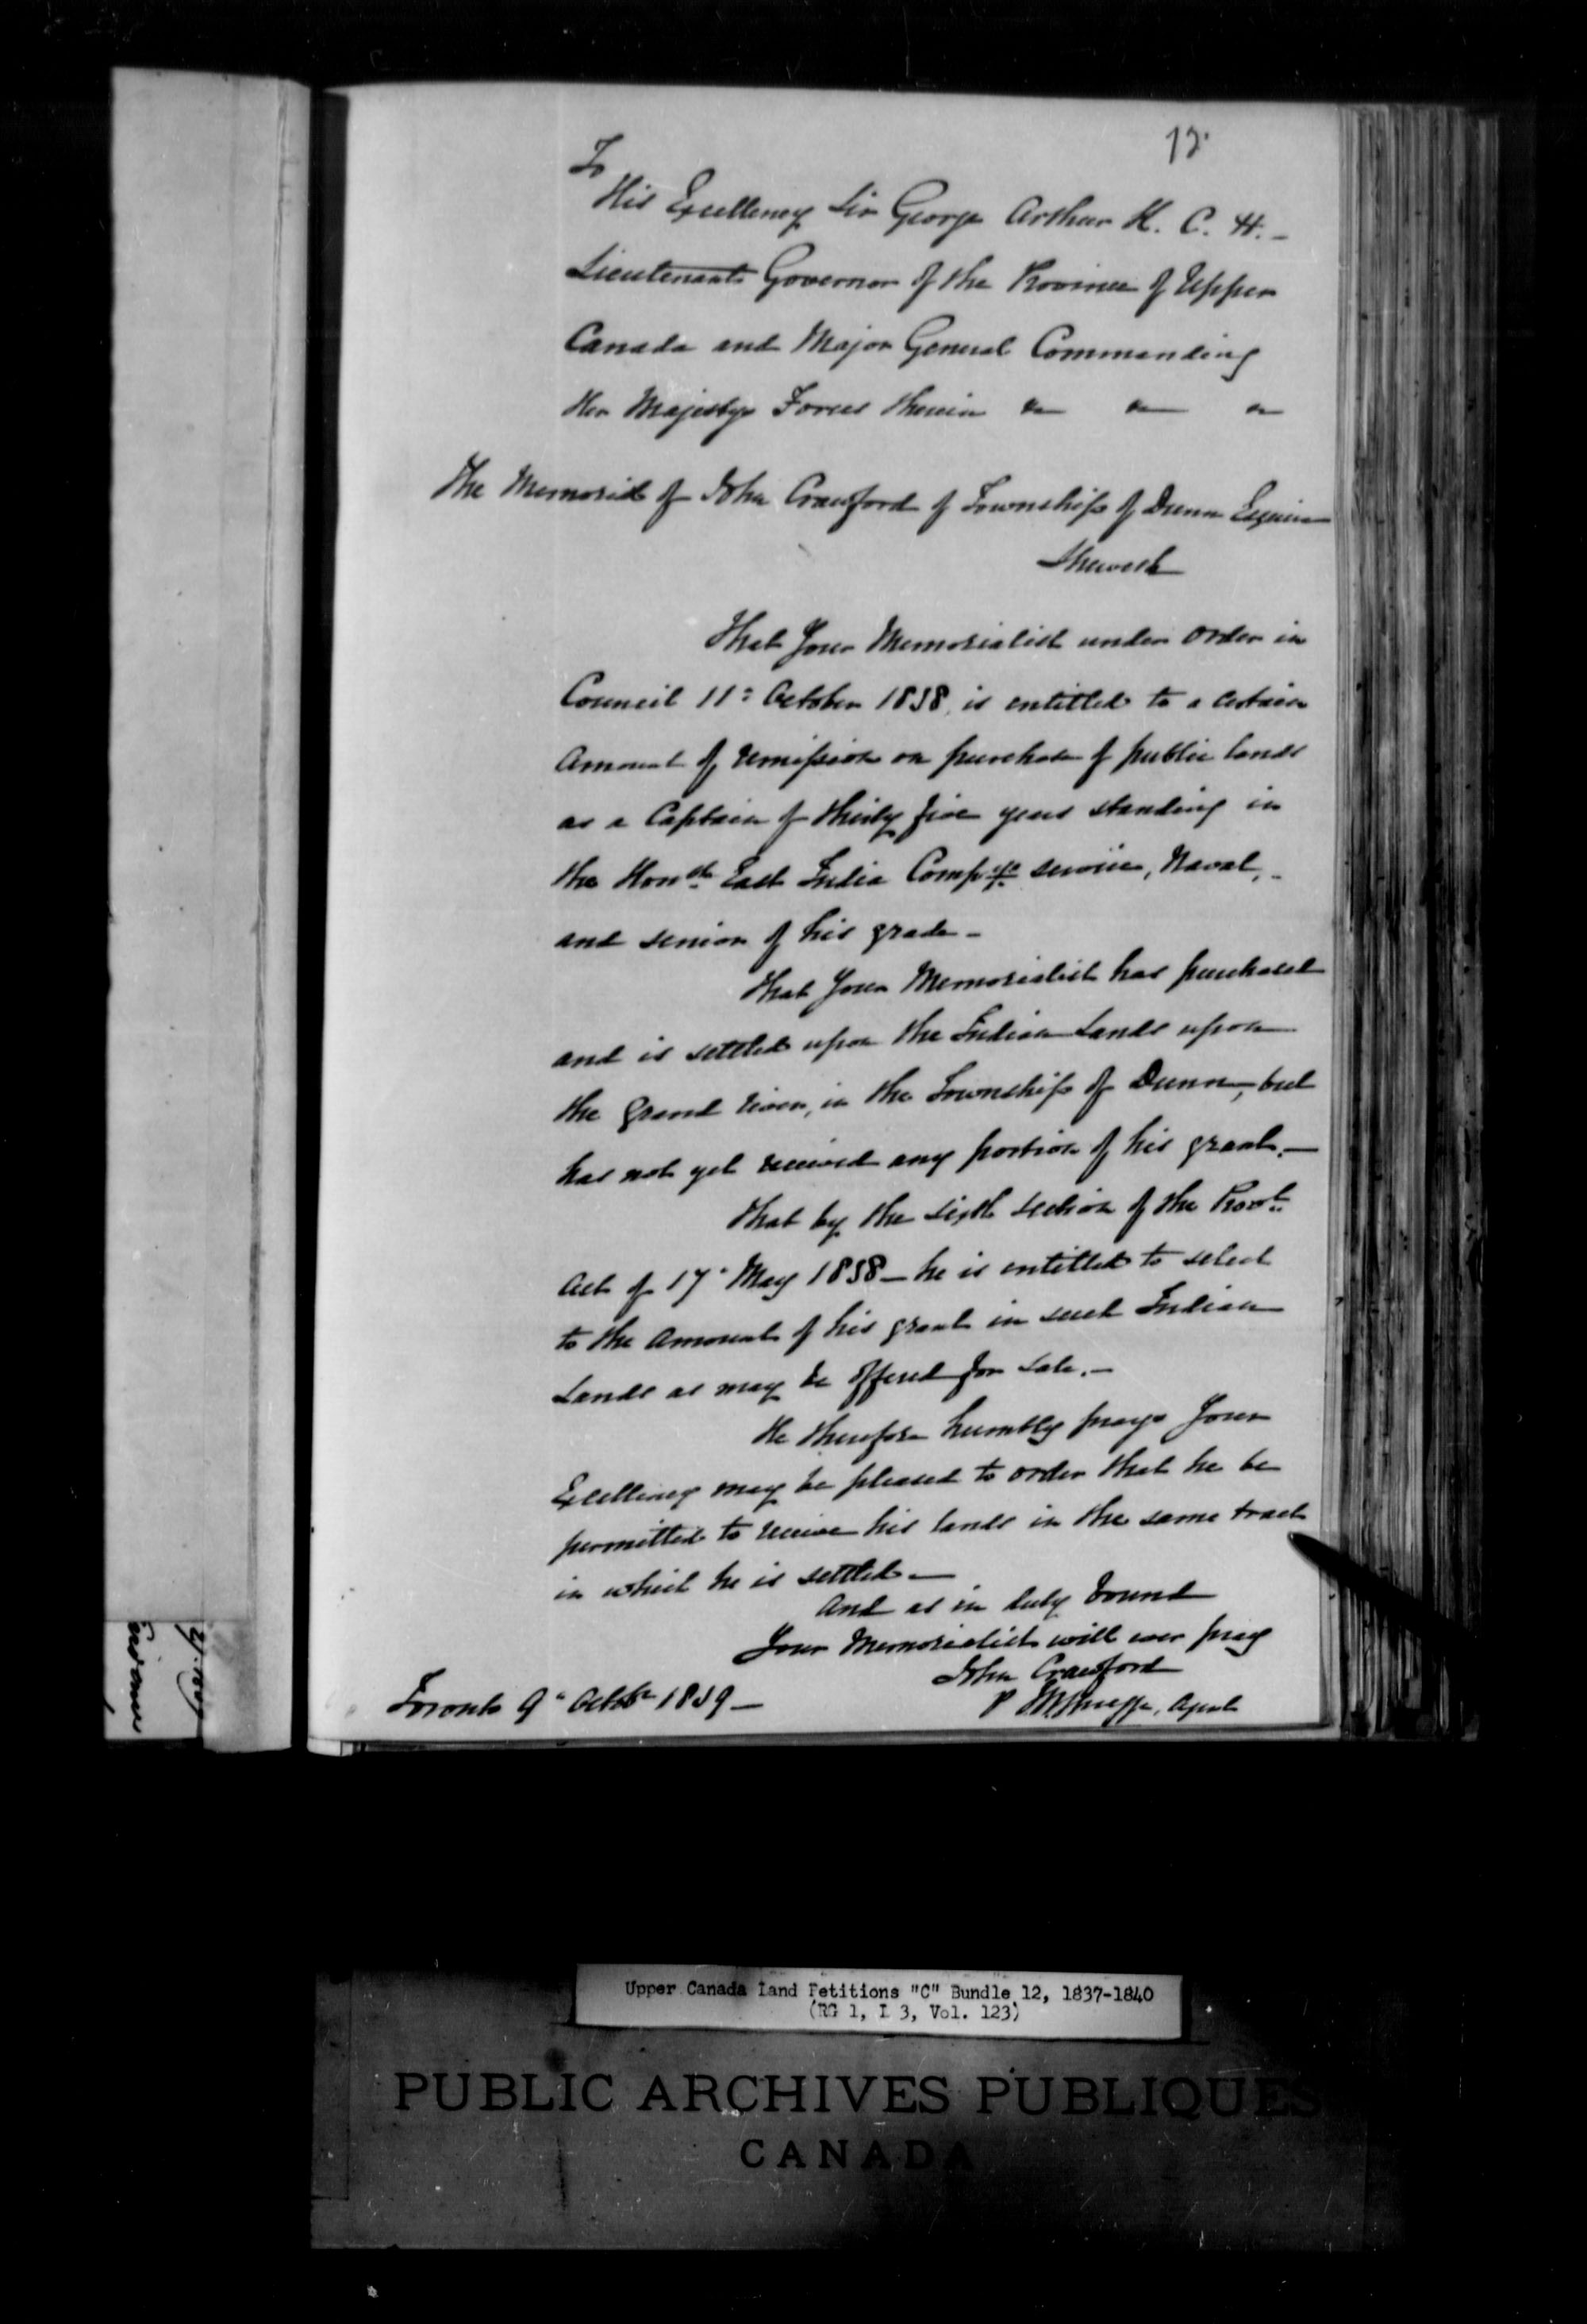 12
To
His Excellency Sir George Arthur K. C. H. -
Lieutenant Governor of the Province of Upper
Canada and Major General Commanding
Her Majestys Forces therein
The Memorial of John Crawford of Township of Dunn Esquire
Sheweth
That Your Memorialist under order in
Council 11th October 1838, is entitled to a certain
Amount of remission on purchase of public lands
as a Captain of thirty five years standing in
the Honble East India Compys service, Naval, -
and senior of his grade -
That Your Memorialist has purchased
and is settled upon the Indian Lands upon
the Grand River, in the Township of Dunn, but
has not yet received any portion of his grant. -
That by the sixth section of the Provl
Act of 17th May 1838 - he is entitled to select
to the Amount of his grant in such Indian
Lands as may be offered for sale. -
He therefore humbly prays Your
Excellency may be pleased to order that he be
permitted to receive his lands in the same tract
in which he is settled -
And as in duty bound
Your Memorialist will ever pray
John Crawford
P Agent
Toronto 9th Octbr 1839 -
Upper Canada Land Petitions "C" Bundle 12, 1837-1840
(RG 1, L 3, Vol. 123)
PUBLIC ARCHIVES PUBLIQUES
CANADA